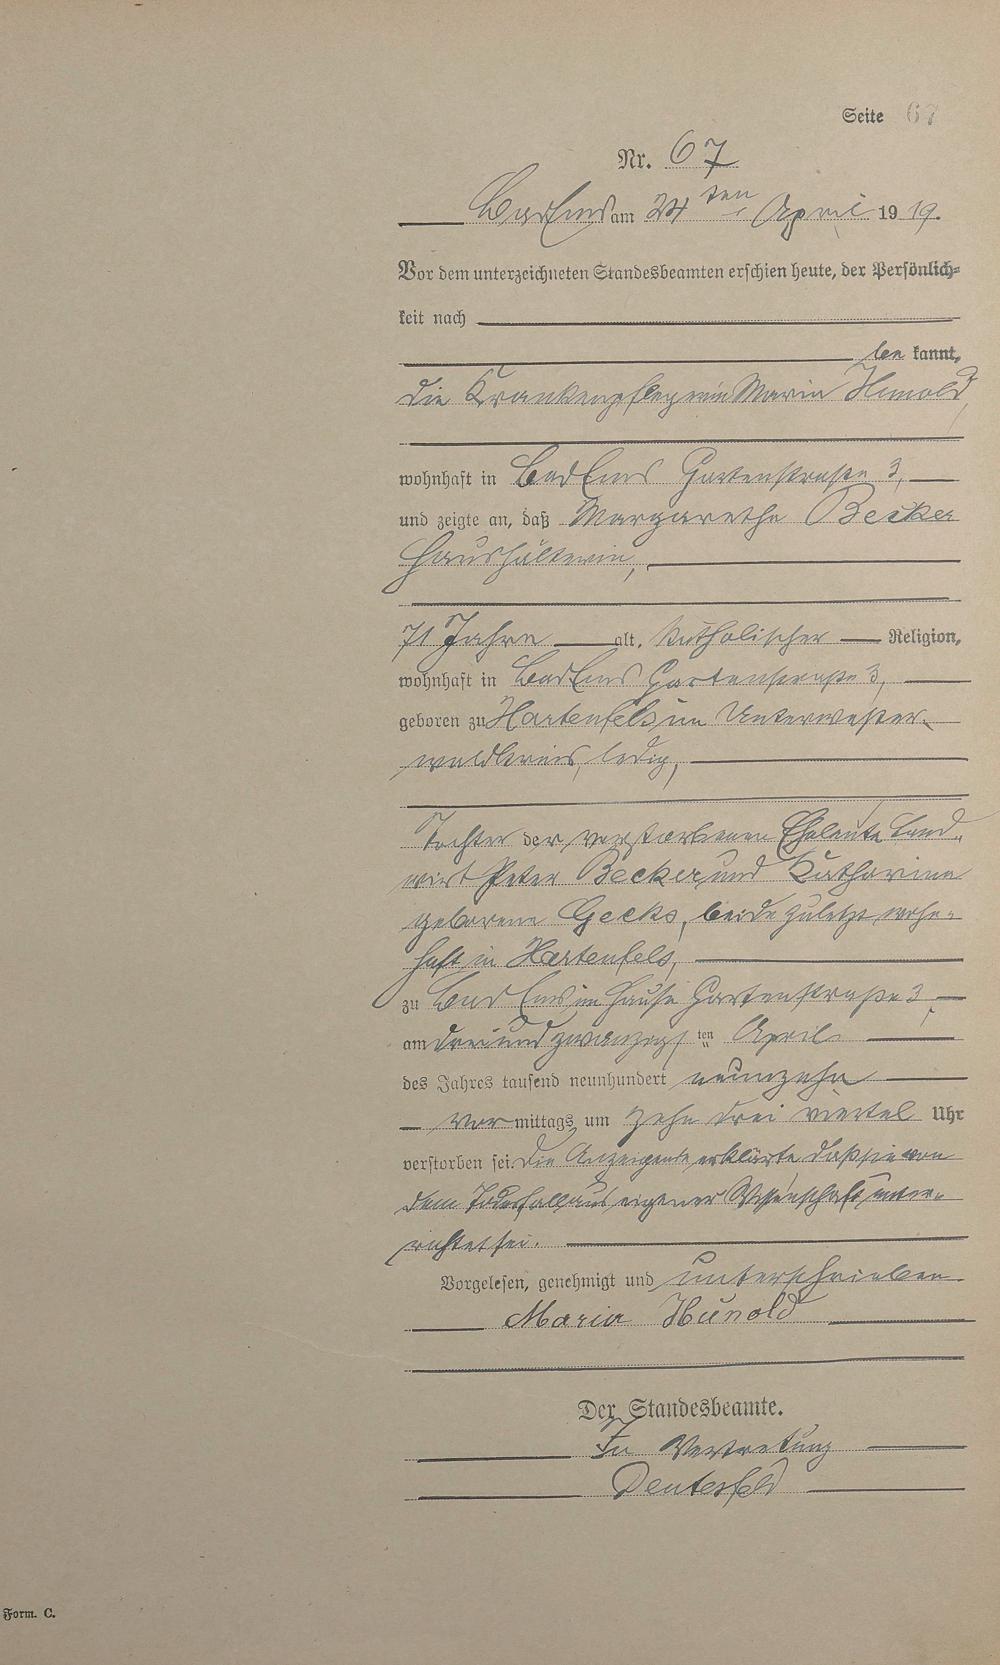 Seite 67
Nr. 67
Bad Ems am 24 ten April 1919.
Vor dem unterzeichneten Standesbeamten erschien heute, der Persönlich-
keit nach
be kannt,
die Krankenpflegerin Maria Hunold,
wohnhaft in Bad Ems Gartenstraße 3,
und zeigte an, daß Margarethe Becker
Haushälterin,
71 Jahre alt, katholischer Religion,
wohnhaft in Bad Ems Gartenstraße 3,
geboren zu Hartenfels im Unterwester-
waldkreis, ledig,
Tochter der verstorbenen Eheleute Land-
wirt Peter Becker und Katharina
geborene Gecks, beide zuletzt wohn-
haft in Hartenfels,
zu Bad Ems im Hause Gartenstraße 3,
am dreiundzwanzigsten April
des Jahres tausend neunhundert neunzehn
vor mittags um zehn drei viertel Uhr
verstorben sei. Die Anzeigende erklärte daß sie von
dem Todesfall aus eigener Wissenschaft unter-
richtet sei.
Vorgelesen, genehmigt und unterschrieben
Maria Hunold
Der Standesbeamte.
In Vertretung
Deutesfeld
Form. C.